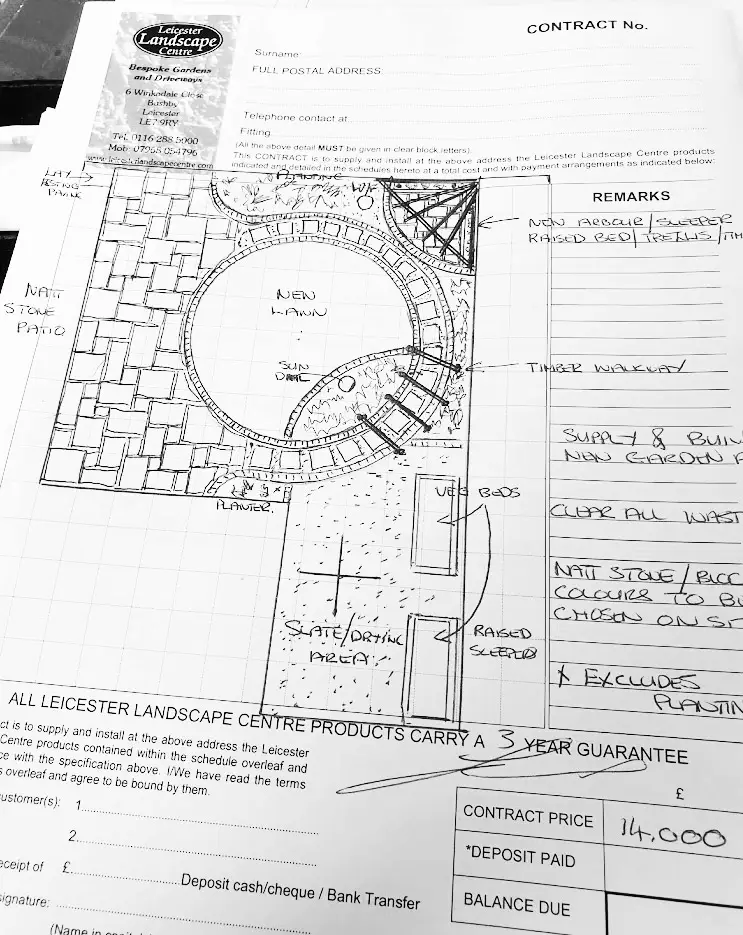 CONTRACT No.
Leicester
Landscape
Centre
Bespoke Gardens
and Driveways
6 Winkadale Close
Bushby
Leicester
LE7 9RY
Tel. 0116 288 5000
Mob: 07955 054796
www.leicesterlandscapecentre.com
Surname:
FULL POSTAL ADDRESS:
Telephone contact at
Fitting
(All the above detail MUST be given in clear block letters).
This CONTRACT is to supply and install at the above address the Leicester Landscape Centre products
indicated and detailed in the schedules hereto at a total cost and with payment arrangements as indicated below:
REMARKS
PLANTING
W/F
NEW ARBOUR/SLEEPER
RAISED BED/TRELLIS/TIM
NATT
STONE
PATIO
NEW
LAWN
SUN
DIAL
TIMBER WALKWAY
SUPPLY & BUIL
NEW GARDEN A
VEG BEDS
CLEAR ALL WAST
PLANTER.
NATT STONE/BLOC
COLOURS TO B
CHOSEN ON SIT
SLATE/DRYING
AREA
RAISED
SLEEPERS
* EXCLUDES
PLANTIN
ALL LEICESTER LANDSCAPE CENTRE PRODUCTS CARRY A 3 YEAR GUARANTEE
ct is to supply and install at the above address the Leicester
Centre products contained within the schedule overleaf and
ce with the specification above. I/We have read the terms
s overleaf and agree to be bound by them.
ustomer(s): 1
2
eceipt of £ Deposit cash/cheque / Bank Transfer
signature:
(Name in
£
CONTRACT PRICE 14,000
*DEPOSIT PAID
BALANCE DUE